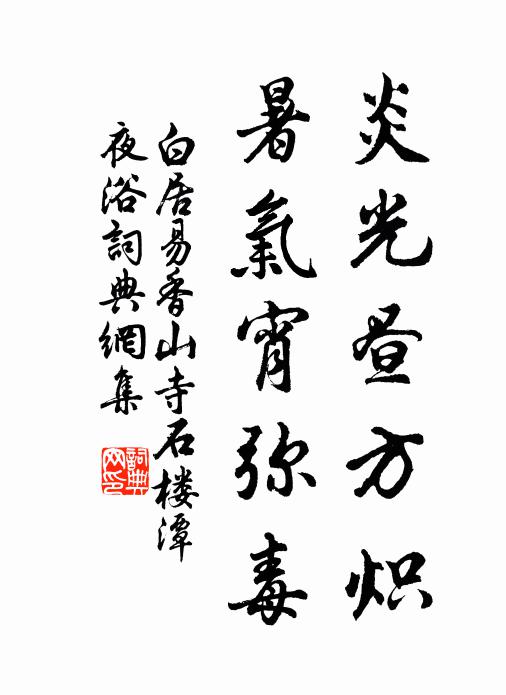 炎光昼方炽
暑氣宵弥毒
白居易香山寺石楼潭
夜浴詞典網集
詞典网印